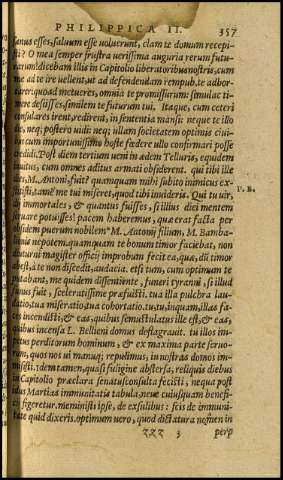 PHILIPPICA II. 357
sanus esses, saluum esse uoluerunt, clam te domum recepi-
sti? O mea semper frustra uerissima auguria rerum futu-
rarum! dicebam illis in Capitolio liberatoribus nostris, cum
me ad te ire uellent, ut ad defendendam rempub. te adhor-
tarer: quoad metueres, omnia te promissurum: simulac ti-
mere desiisses, similem te futurum tui. Itaque, cum ceteri
consulares irent, redirent, in sententia mansi: neque te illo
die, neq; postero uidi: neq; ullam societatem optimis ciui-
bus cum importunissimo hoste fœdere ullo confirmari posse
credidi. Post diem tertium ueni in ædem Telluris, equidem
inuitus, cum omnes aditus armati obsiderent. qui tibi ille
dies, M. Antoni, fuit? quamquam mihi subito inimicus ex-
titisti, tamē me tui miseret, quod tibi inuideris. Qui tu uir,
P. B.
di immortales, & quantus fuisses, si illius diei mentem
seruare potuisses! pacem haberemus, quæ erat facta per
obsidem puerum nobilem M. Antonij filium, M. Bamba-
lionis nepotem. quamquam te bonum timor faciebat, non
diuturni magister officij: improbum fecit ea, quæ, dū timor
abest, à te non discedit, audacia. etsi tum, cum optimum te
putabant, me quidem dissentiente, funeri tyranni, si illud
funus fuit, sceleratissime præfuisti. tua illa pulchra lau-
datio, tua miseratio, tua cohortatio. tu, tu, inquam, illas fa-
ces incendisti, & eas, quibus semustulatus ille est, & eas,
quibus incensa L. Bellieni domus deflagrauit. tu illos im-
petus perditorum hominum, & ex maxima parte seruo-
rum, quos nos ui manuq; repulimus, in nostras domos im-
misisti. idem tamen, quasi fuligine abstersa, reliquis diebus
in Capitolio præclara senatusconsulta fecisti, nequa post
idus Martias immunitatis tabula, neue cuiusquam benefi-
cij figeretur. meministi ipse, de exsulibus: scis de immuni-
tate quid dixeris. optimum uero, quod dictaturæ nomen in
zzz 3 perp